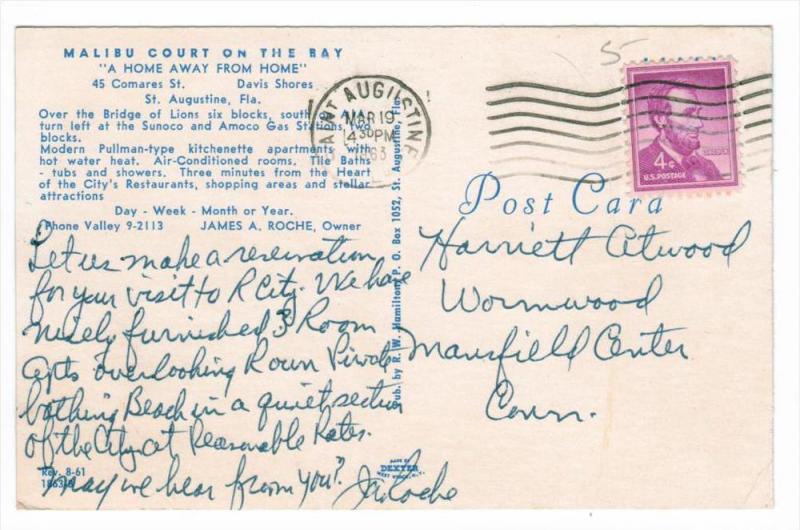 MALIBU COURT ON THE BAY
"A HOME AWAY FROM HOME"
45 Comares St. Davis Shores
St. Augustine, Fla.
Over the Bridge of Lions six blocks, south on A1A
turn left at the Sunoco and Amoco Gas Stations, two
blocks.
Modern Pullman-type kitchenette apartments with
hot water heat. Air-Conditioned rooms. Tile Baths
- tubs and showers. Three minutes from the Heart
of the City's Restaurants, shopping areas and stellar
attractions
Day - Week - Month or Year.
Phone Valley 9-2113 JAMES A. ROCHE, Owner
Let us make a reservation
for your visit to R City. We have
nicely furnished 3 Room
apts overlooking Roun Private
bathing Beach in a quiet section
of the City at Reasonable Rates.
May we hear from you?
JaRoche
Rev. 8-61
Pub. by R. W. Hamilton, P. O. Box 1052, St. Augustine, Fla.
MADE BY
DEXTER
WEST NYACK, N.Y.
SAINT AUGUSTINE
MAR 19
4 30 PM
1963
5
4¢
U.S. POSTAGE
Post Card
Harriett Atwood
Wormwood
Mansfield Center
Conn.